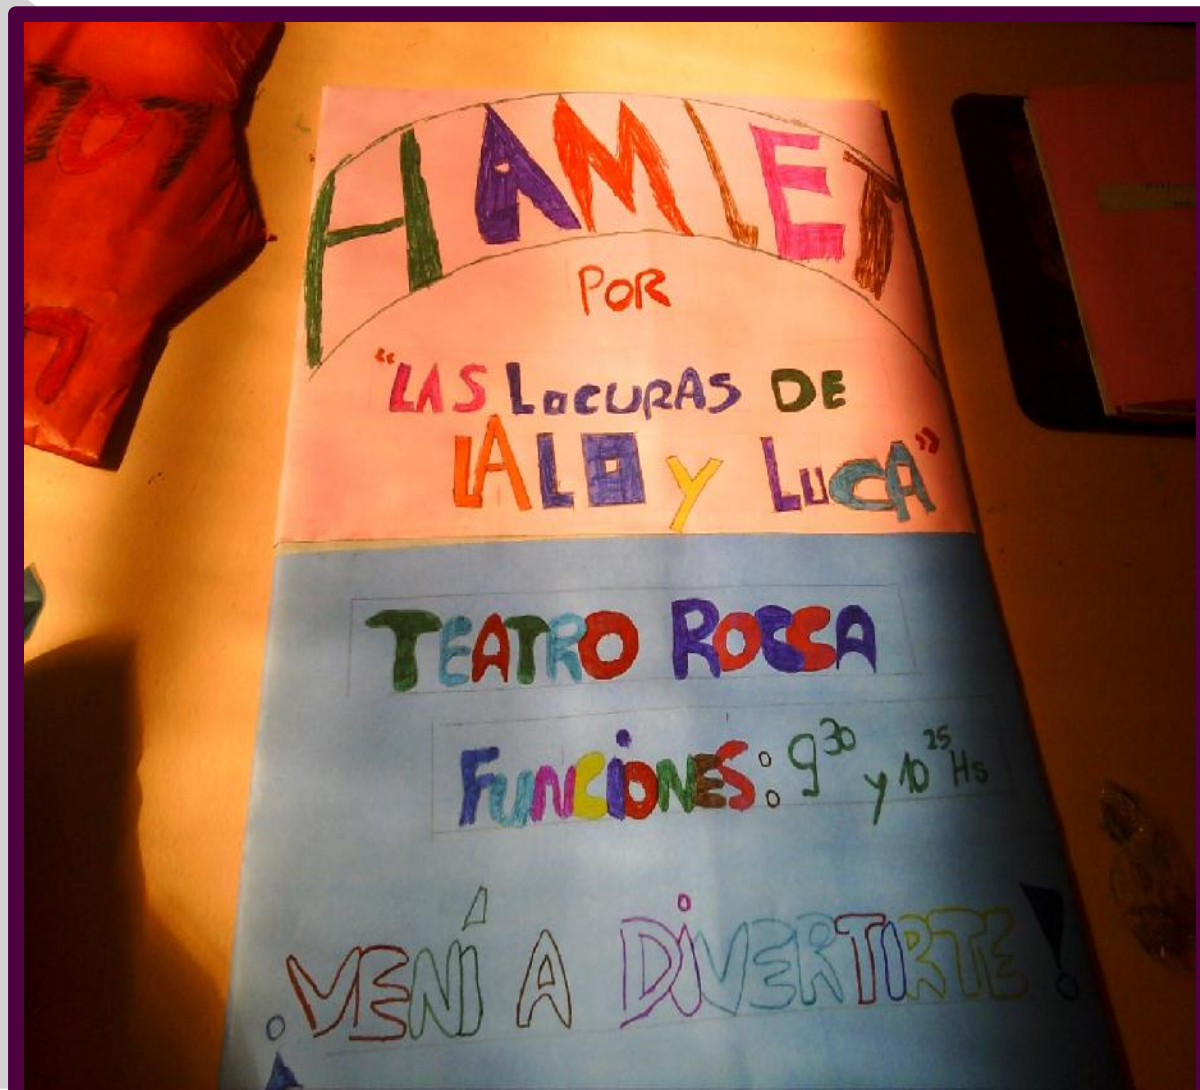 HAMLET
POR
"LAS LOCURAS DE
LALO Y LUCA"
TEATRO ROCCA
FUNCIONES: 9³⁰ y 10²⁵ Hs
¡VENÍ A DIVERTIRTE!